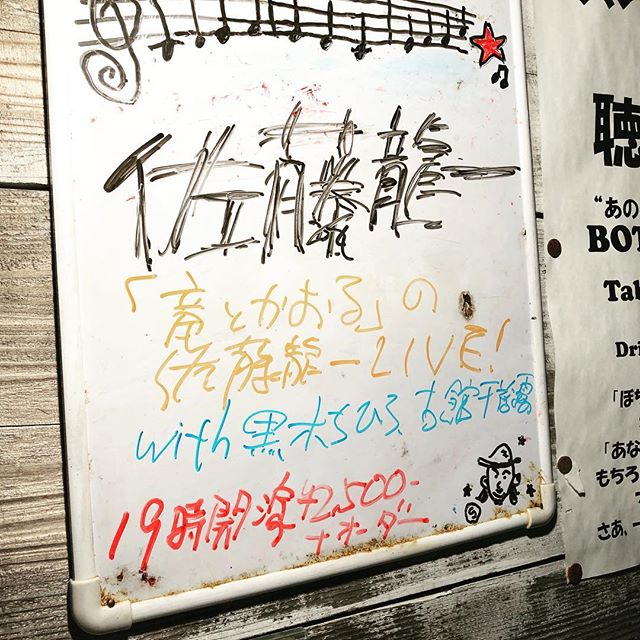 佐藤龍一
「竜とかおる」の
佐藤龍一LIVE!
with 黒木ちひろ、古舘千香雲
19時開演 ¥2,500-
+オーダー
聴
"あの
BOT
Tab
Dri
「ぼち
「あな
もちろ
さあ、一